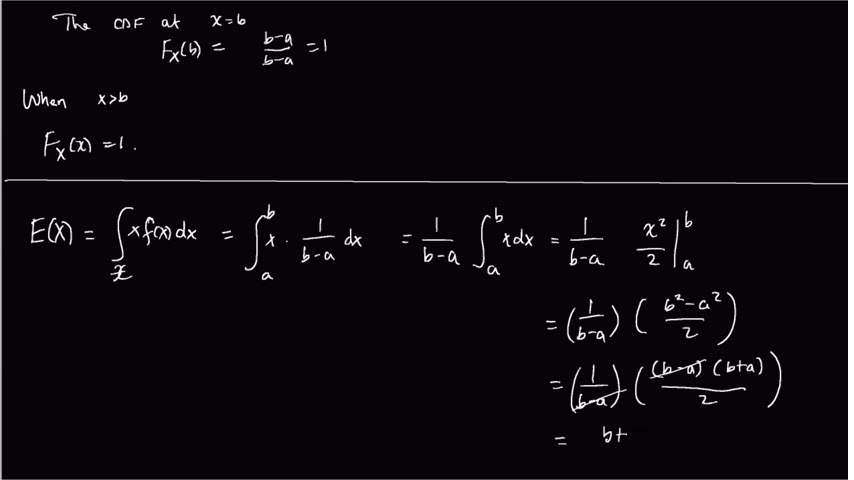 The CDF at x=b
F_X(b) = \frac{b-a}{b-a} = 1
When x>b
F_X(x) = 1.
E(X) = \int_{\mathcal{X}} x f(x) dx = \int_a^b x \cdot \frac{1}{b-a} dx = \frac{1}{b-a} \int_a^b x dx = \frac{1}{b-a} \frac{x^2}{2} |_a^b
= (\frac{1}{b-a}) (\frac{b^2-a^2}{2})
= (\frac{1}{b-a}) (\frac{(b-a)(b+a)}{2})
= b+